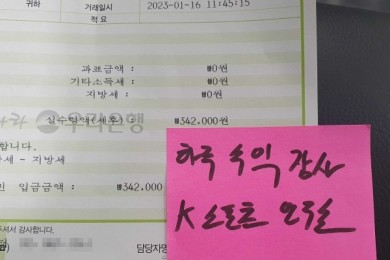 귀하 거래일시 2023-01-16 11:45:15
적 요
과표금액 : ₩0원
기타소득세 : ₩0원
지방세 : ₩0원
우리은행
실수령액(세후) : ₩342.000원
합니다.
세 - 지방세
인 입금금액 : ₩342.000
주셔서 감사합니다.
담당자명
하루 수익 감사
K스포츠 오두실